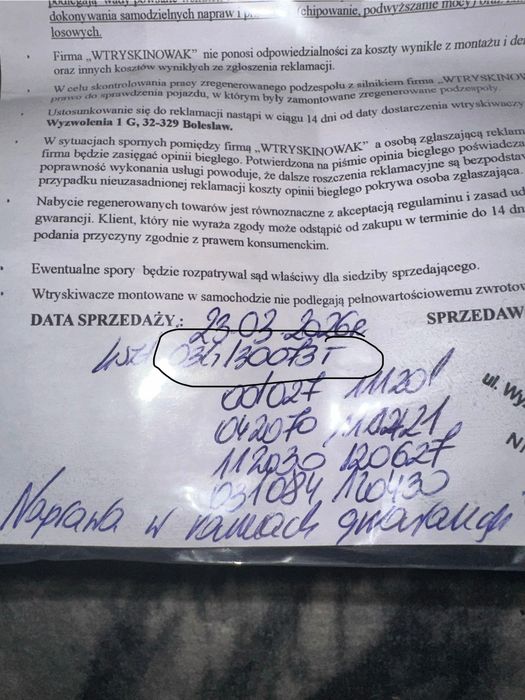 podlegają wady powstałe
dokonywania samodzielnych napraw i (chipowanie, podwyższanie mocy) oraz
losowych.
Firma „WTRYSKINOWAK” nie ponosi odpowiedzialności za koszty wynikłe z montażu i de
oraz innych kosztów wynikłych ze zgłoszenia reklamacji.
W celu skontrolowania pracy zregenerowanego podzespołu z silnikiem firma „WTRYSKINOW
prawo do sprawdzenia pojazdu, w którym były zamontowane zregenerowane podzespoły.
Ustosunkowanie się do reklamacji nastąpi w ciągu 14 dni od daty dostarczenia wtryskiwaczy
Wyzwolenia 1 G, 32-329 Bolesław.
W sytuacjach spornych pomiędzy firmą „WTRYSKINOWAK” a osobą zgłaszającą reklam
firma będzie zasięgać opinii biegłego. Potwierdzona na piśmie opinia biegłego poświadcza
poprawność wykonania usługi powoduje, że dalsze roszczenia reklamacyjne są bezpodstaw
przypadku nieuzasadnionej reklamacji koszty opinii biegłego pokrywa osoba zgłaszająca.
Nabycie regenerowanych towarów jest równoznaczne z akceptacją regulaminu i zasad ud
gwarancji. Klient, który nie wyraża zgody może odstąpić od zakupu w terminie do 14 dn
podania przyczyny zgodnie z prawem konsumenckim.
Ewentualne spory będzie rozpatrywał sąd właściwy dla siedziby sprzedającego.
Wtryskiwacze montowane w samochodzie nie podlegają pełnowartościowemu zwrotow
DATA SPRZEDAŻY: 23.03.2026r SPRZEDAW
03L130073T
001027 111201
ul. Wy
042070 110421
112030 120627
031084, 120430
Naprawa w ramach gwarancji